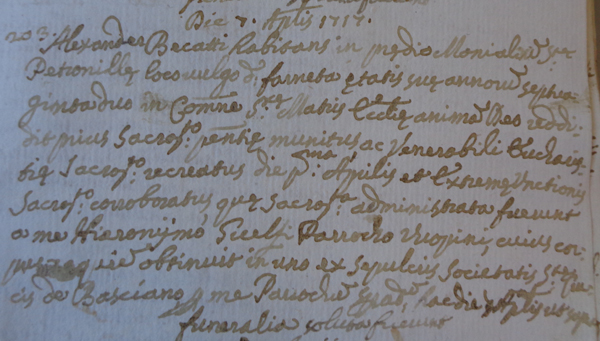 Die 7. Aplis 1717.
203. Alexander Becatti habitans in predio Monialiu Ste
Petronillę loco vulgo d. farneta ętatis suę annoru septua
ginta duo in Comne S. Matris Ecclię anima Deo reddi
dit prius Sacro pentię munitus, ac Venerabili Eucharis
tię Sacro recreatus die pma Aprilis et Extremę Unctionis
Sacro corroboratus, que Sacro administrata fuerunt
a me Hieronymo Parrocho cuius cor
pus obtinuit in uno ex sepulcris Societatis Ste
cis de Basciano p me Parochu hac die 7 Aplis ut supra
funeralia soluta fuerunt